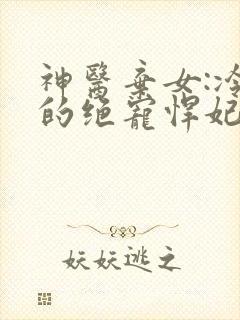 神醫棄女:冷
的绝寵悍妃
妖妖逃之